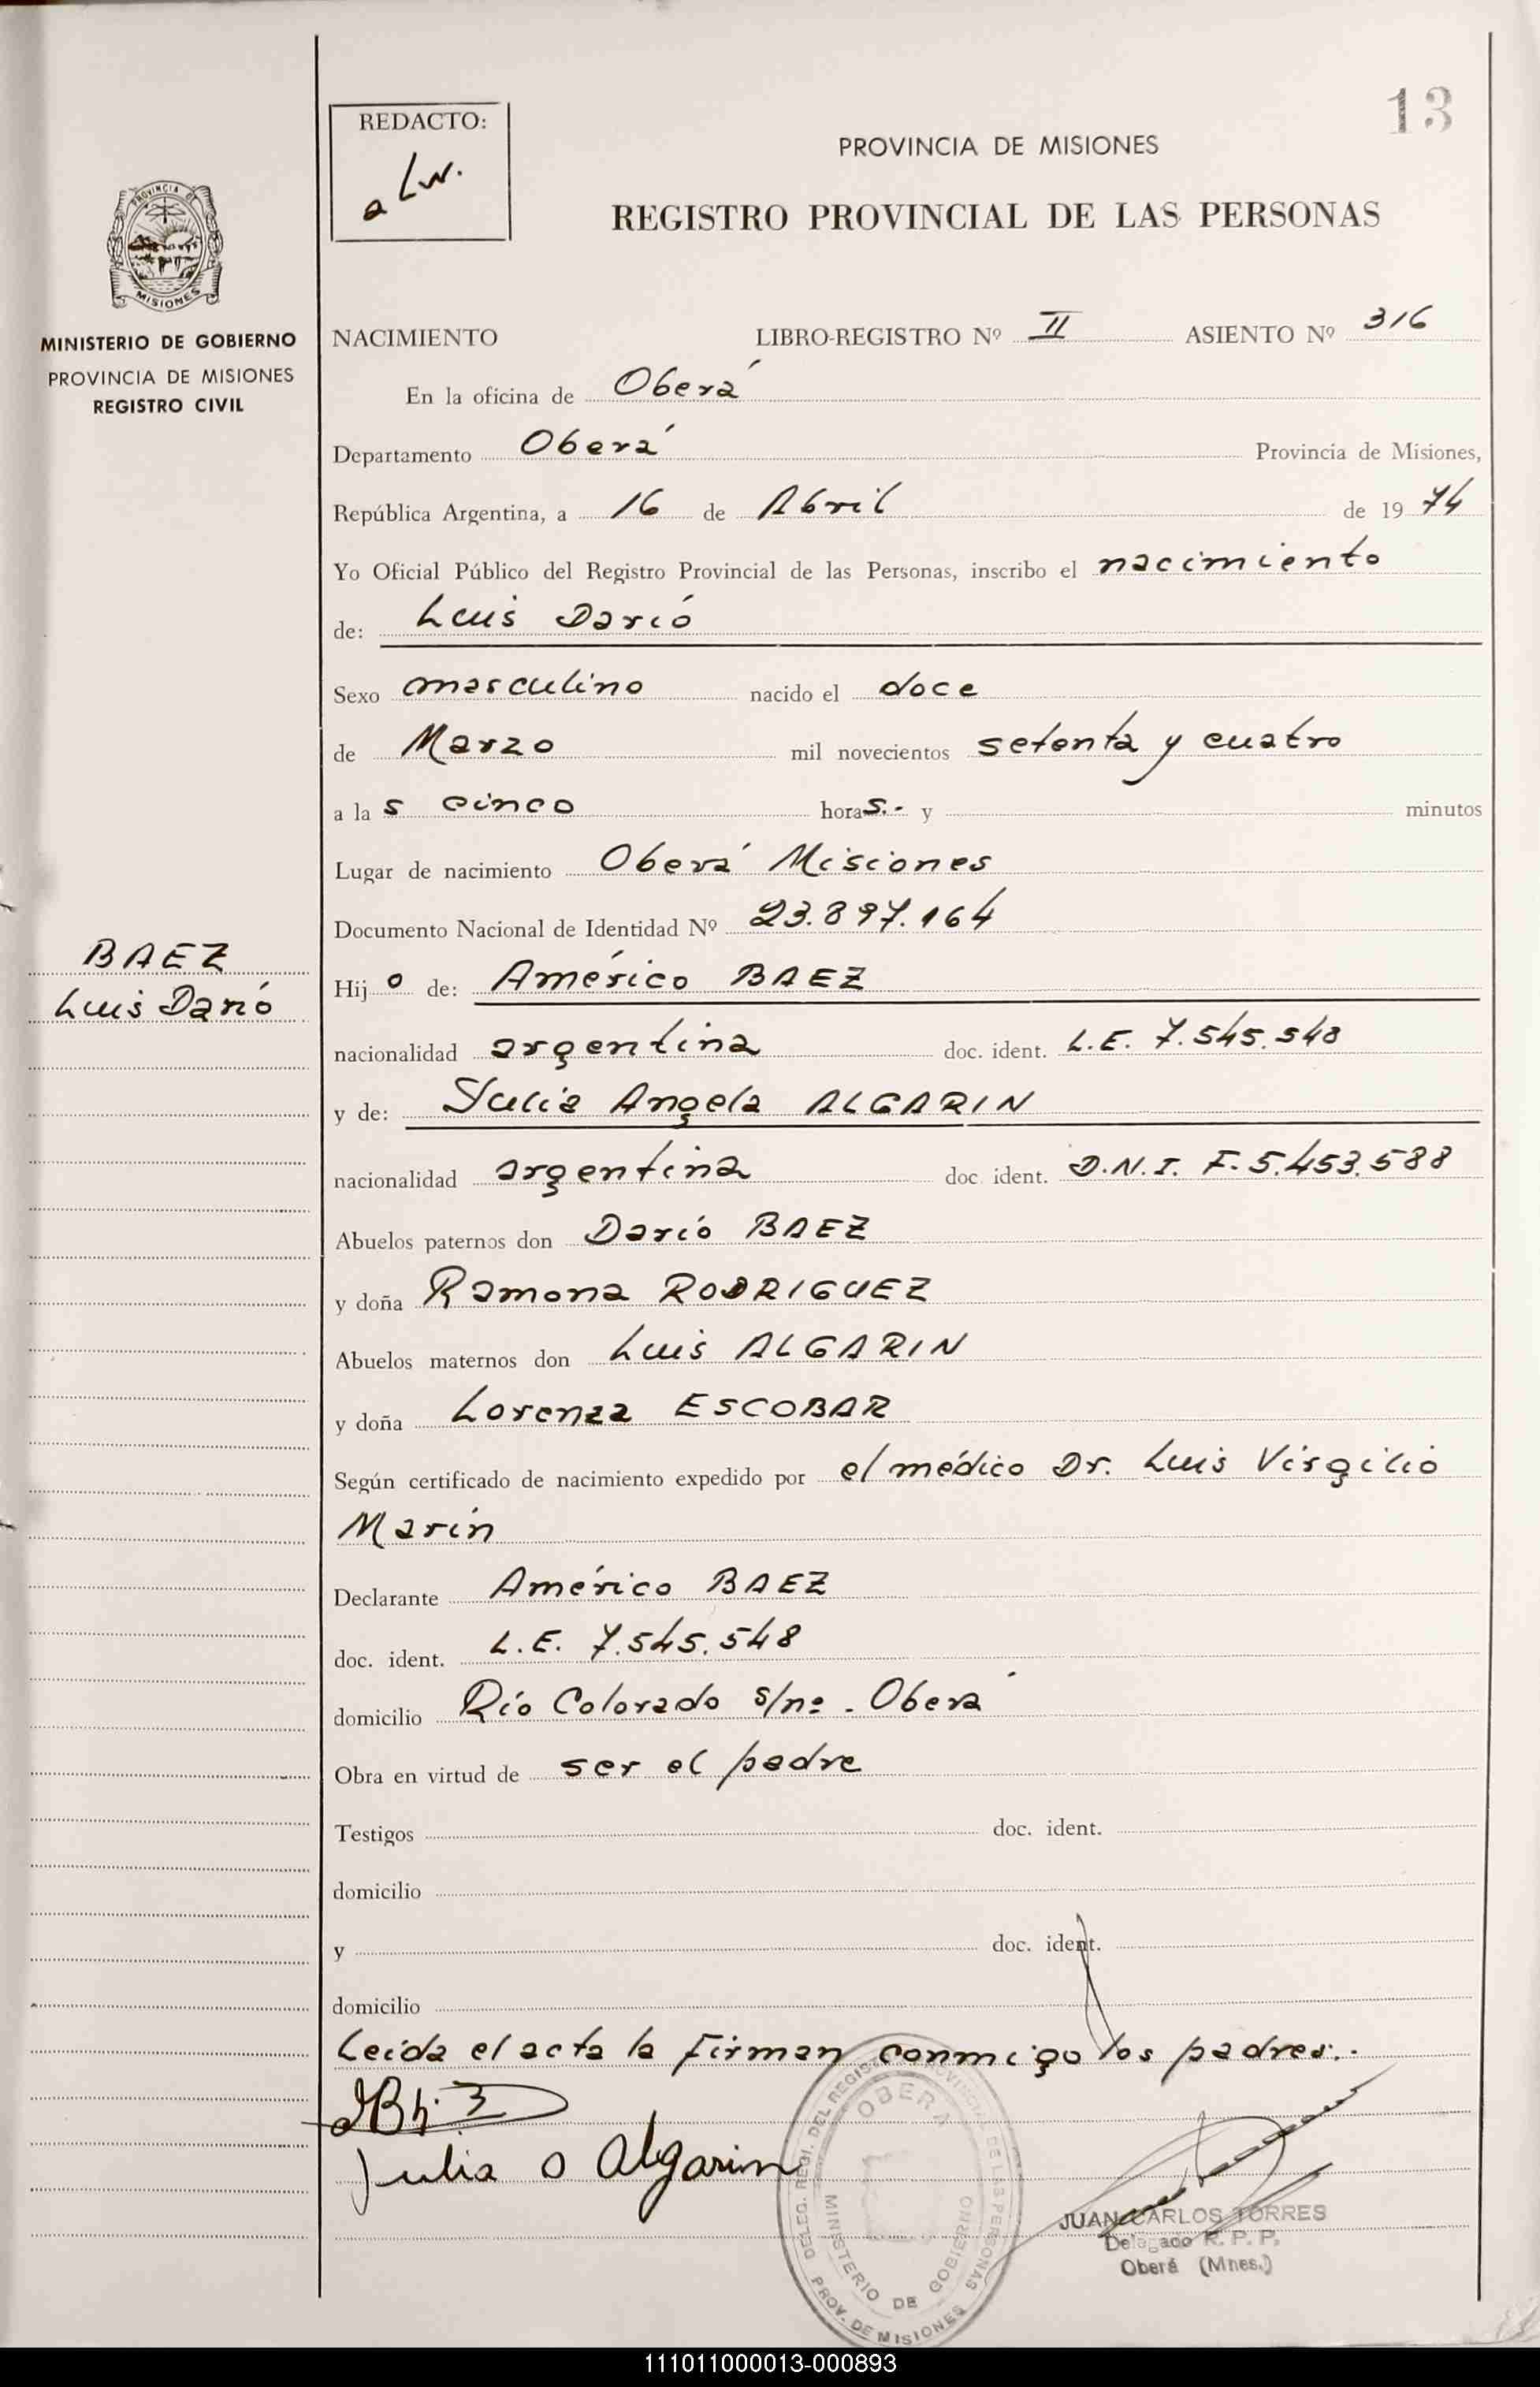 13
REDACTO:
a Lw.
PROVINCIA DE MISIONES
REGISTRO PROVINCIAL DE LAS PERSONAS
PROVINCIA DE
MISIONES
MINISTERIO DE GOBIERNO
PROVINCIA DE MISIONES
REGISTRO CIVIL
NACIMIENTO LIBRO-REGISTRO Nº II ASIENTO Nº 316
En la oficina de Oberá
Departamento Oberá Provincia de Misiones,
República Argentina, a 16 de Abril de 19 74
Yo Oficial Público del Registro Provincial de las Personas, inscribo el nacimiento
de: Luis Darío
Sexo masculino nacido el doce
de Marzo mil novecientos setenta y cuatro
a la s cinco horas.- y minutos
Lugar de nacimiento Oberá Misiones
Documento Nacional de Identidad Nº 23.897.164
BAEZ
Luis Darío
Hij o de: Américo BAEZ
nacionalidad argentina doc. ident. L.E. 7.545.548
y de: Julia Angela ALGARIN
nacionalidad argentina doc. ident. D.N.I. F. 5.453.588
Abuelos paternos don Darío BAEZ
y doña Ramona RODRIGUEZ
Abuelos maternos don Luis ALGARIN
y doña Lorenza ESCOBAR
Según certificado de nacimiento expedido por el médico Dr. Luis Virgilio
Marín
Declarante Américo BAEZ
doc. ident. L.E. 7.545.548
domicilio Río Colorado s/nº - Oberá
Obra en virtud de ser el padre
Testigos doc. ident.
domicilio
y doc. ident.
domicilio
Leída el acta la firman conmigo los padres.-
Julia o Algarin
DELEG. REGI. DEL REGISTRO PROVINCIAL DE LAS PERSONAS
OBERA
MINISTERIO DE GOBIERNO
PROV. DE MISIONES
JUAN CARLOS TORRES
Delegado R. P. P.
Oberá (Mnes.)
111011000013-000893